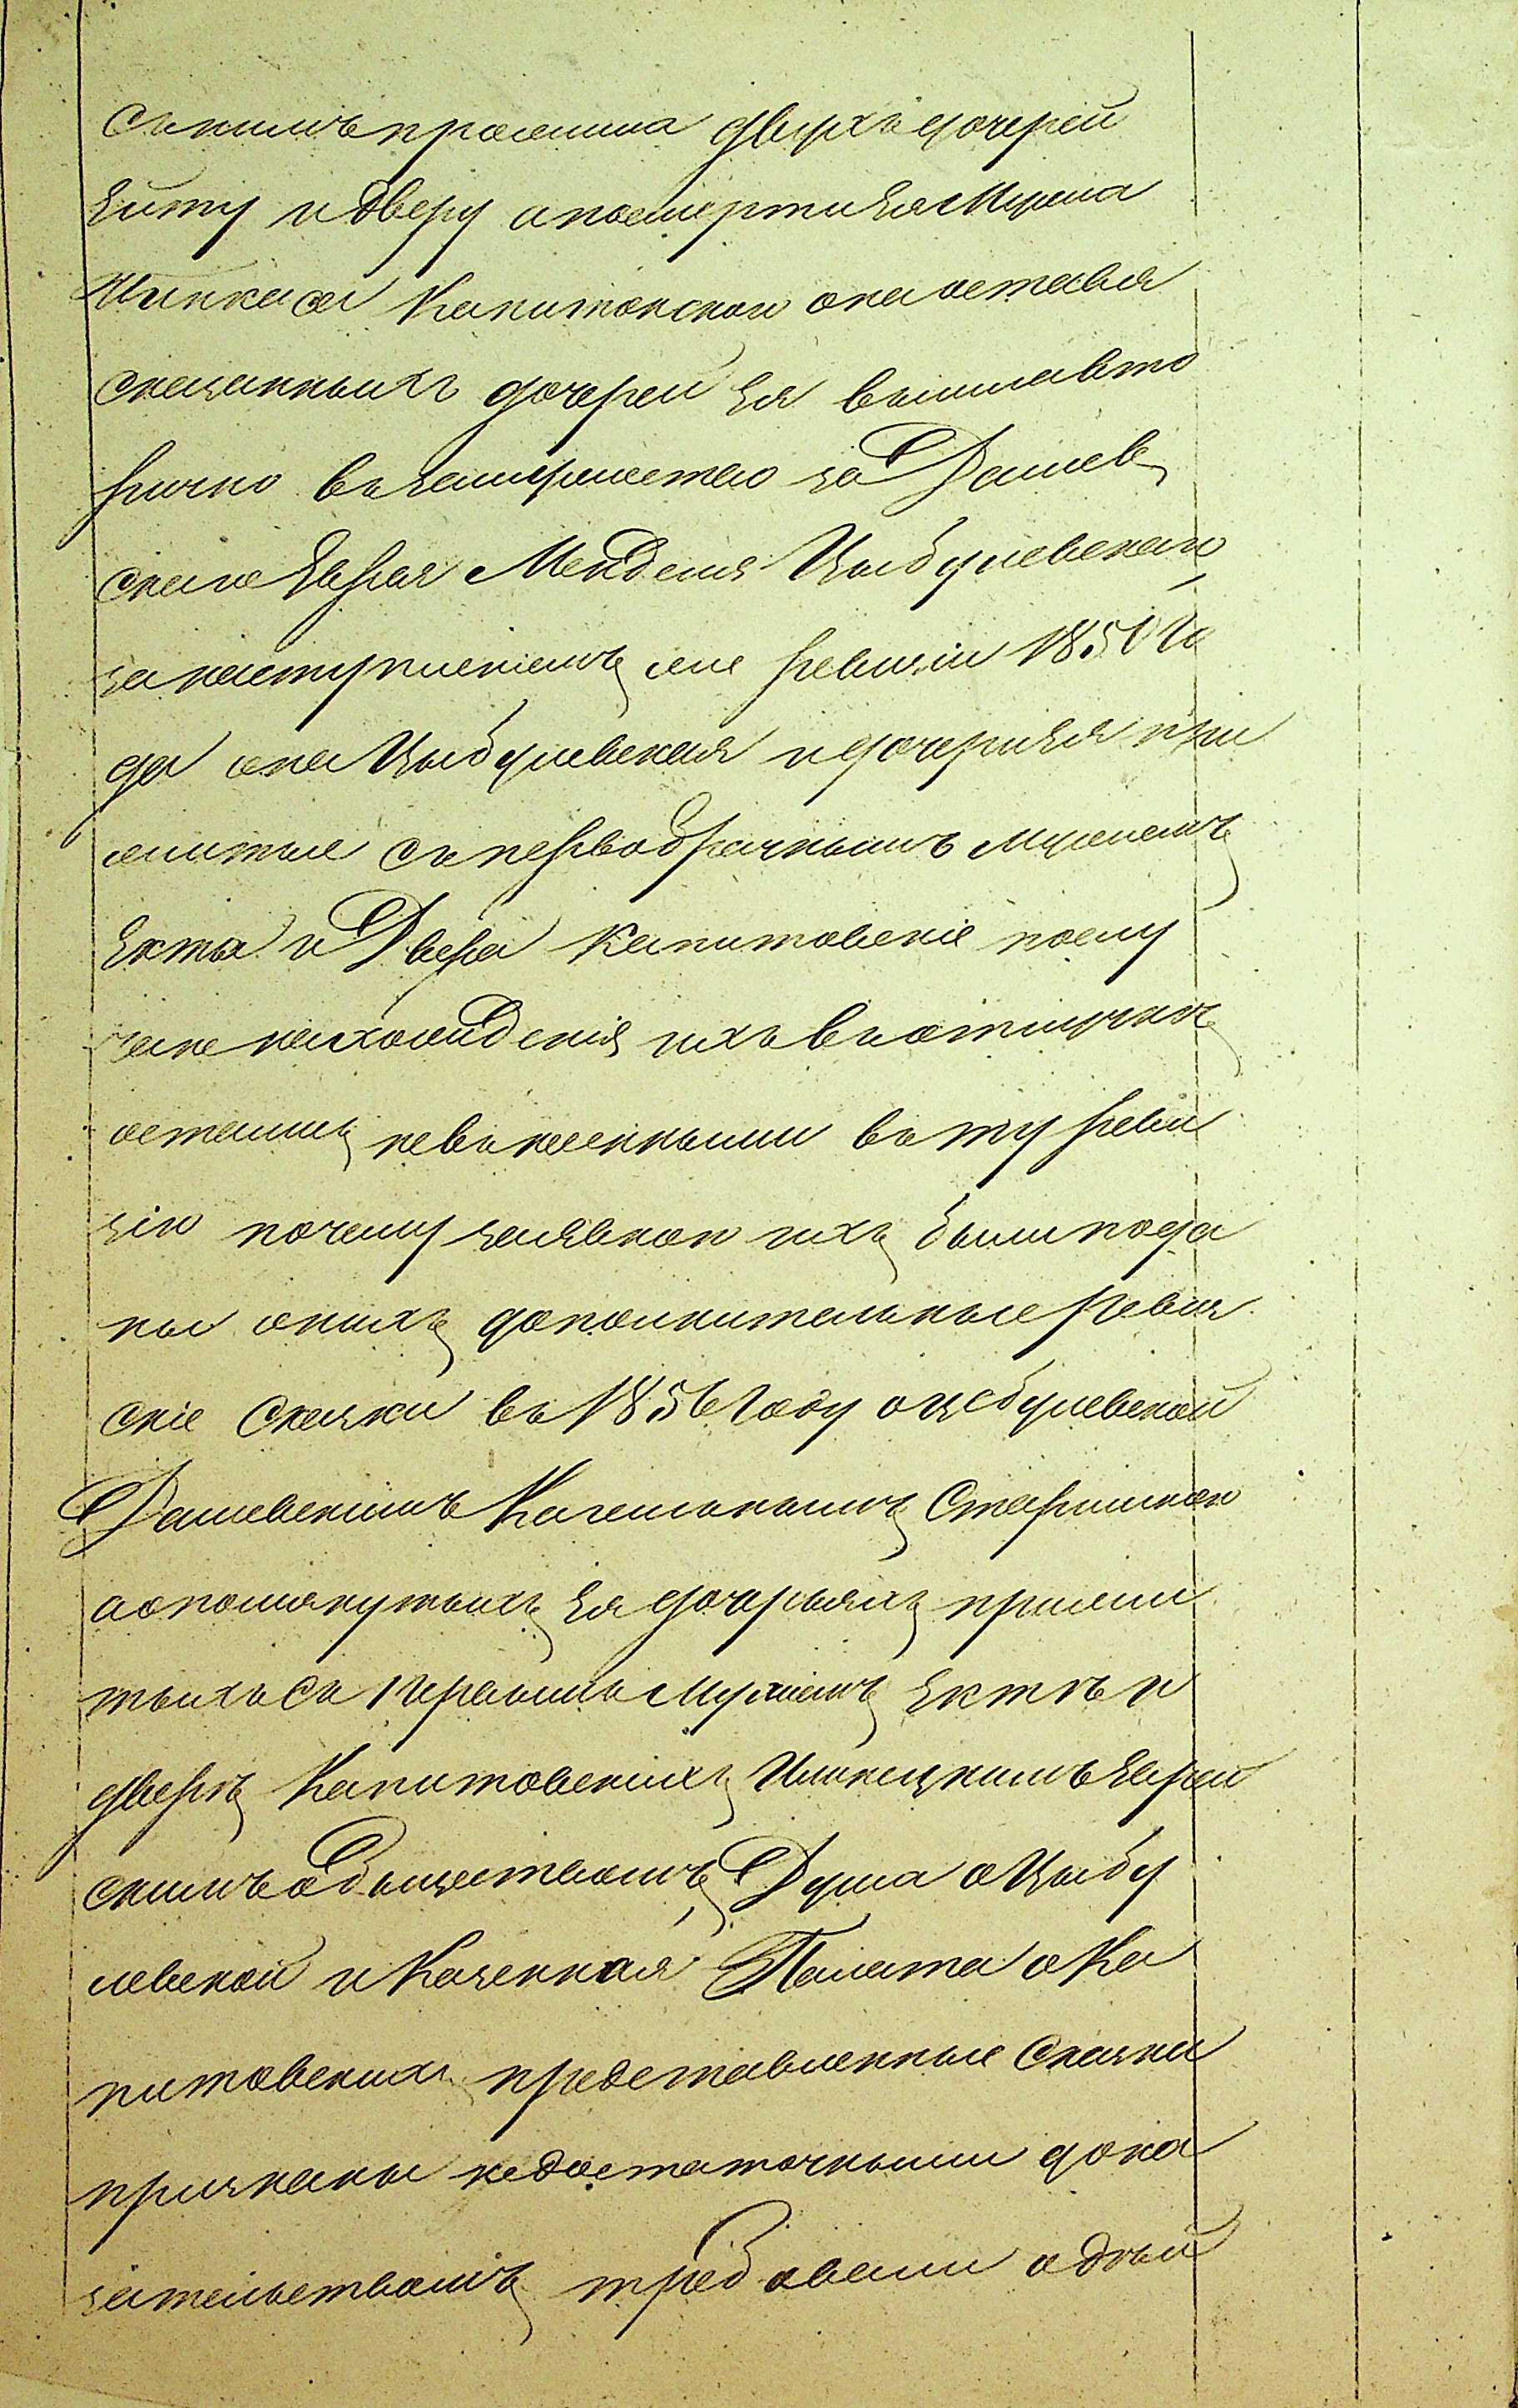 съ нимъ прижила двухъ дочерей
Енту и Дверу а по смерти ея мужа
Пинкаса Капитовскаго она оставя
сказанныхъ дочерей ея вышла вто
рично въ замужество за Дашев
скаго Еврея Менделя Цыбулевскаго,
за наступленіемъ же ревизіи 1850 го
да она Цыбулевская и дочери ея при
житые съ первобрачнымъ мужемъ
Ента и Двера Капитовскіе по слу
чаю нахожденія ихъ въ отлучкѣ
остались невписанными въ ту реви
зію почему заявкою ихъ были пода
ны о нихъ дополнительные ревиз
скіе сказки въ 1856 году о Цыбулевской
Дашевскимъ Кагальнымъ Старшиною
а о помянутыхъ ея дочерьяхъ прижи
тыхъ съ первымъ мужемъ Ентѣ и
Дверѣ Капитовскихъ Илинецкимъ Еврей
скимъ Обществомъ, Дума о Цыбу
левской и Казенная Палата о Ка
питовскихъ представленные сказки
признаны недостаточными дока
зательствомъ требовали о дѣй